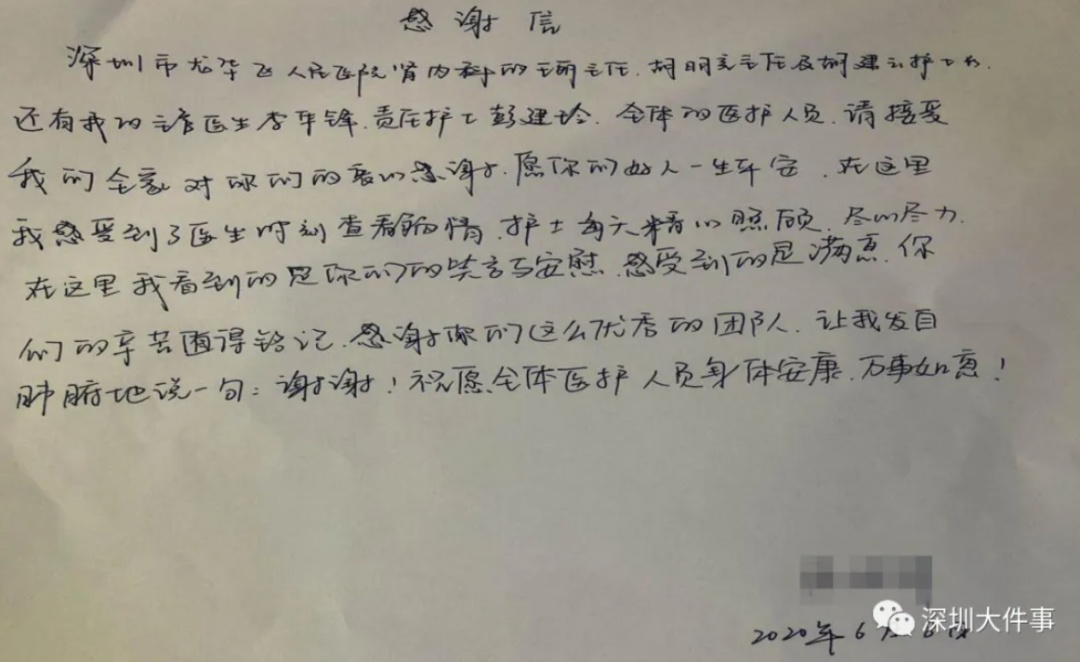 感谢信
深圳市龙华区人民医院肾内科的主任、胡明亮主任及胡建云护士长、
还有我的主管医生李年锋、责任护士彭建玲、全体的医护人员、请接受
我们全家对你们的衷心感谢、愿你们好人一生平安、在这里
我感受到了医生时刻查看病情、护士每天精心照顾、尽心尽力、
在这里我看到的是你们的笑言与安慰、感受到的是满意、你
们的辛苦值得铭记、感谢你们这么优秀的团队、让我发自
肺腑地说一句：谢谢！祝愿全体医护人员身体安康、万事如意！
2020年6月
深圳大件事